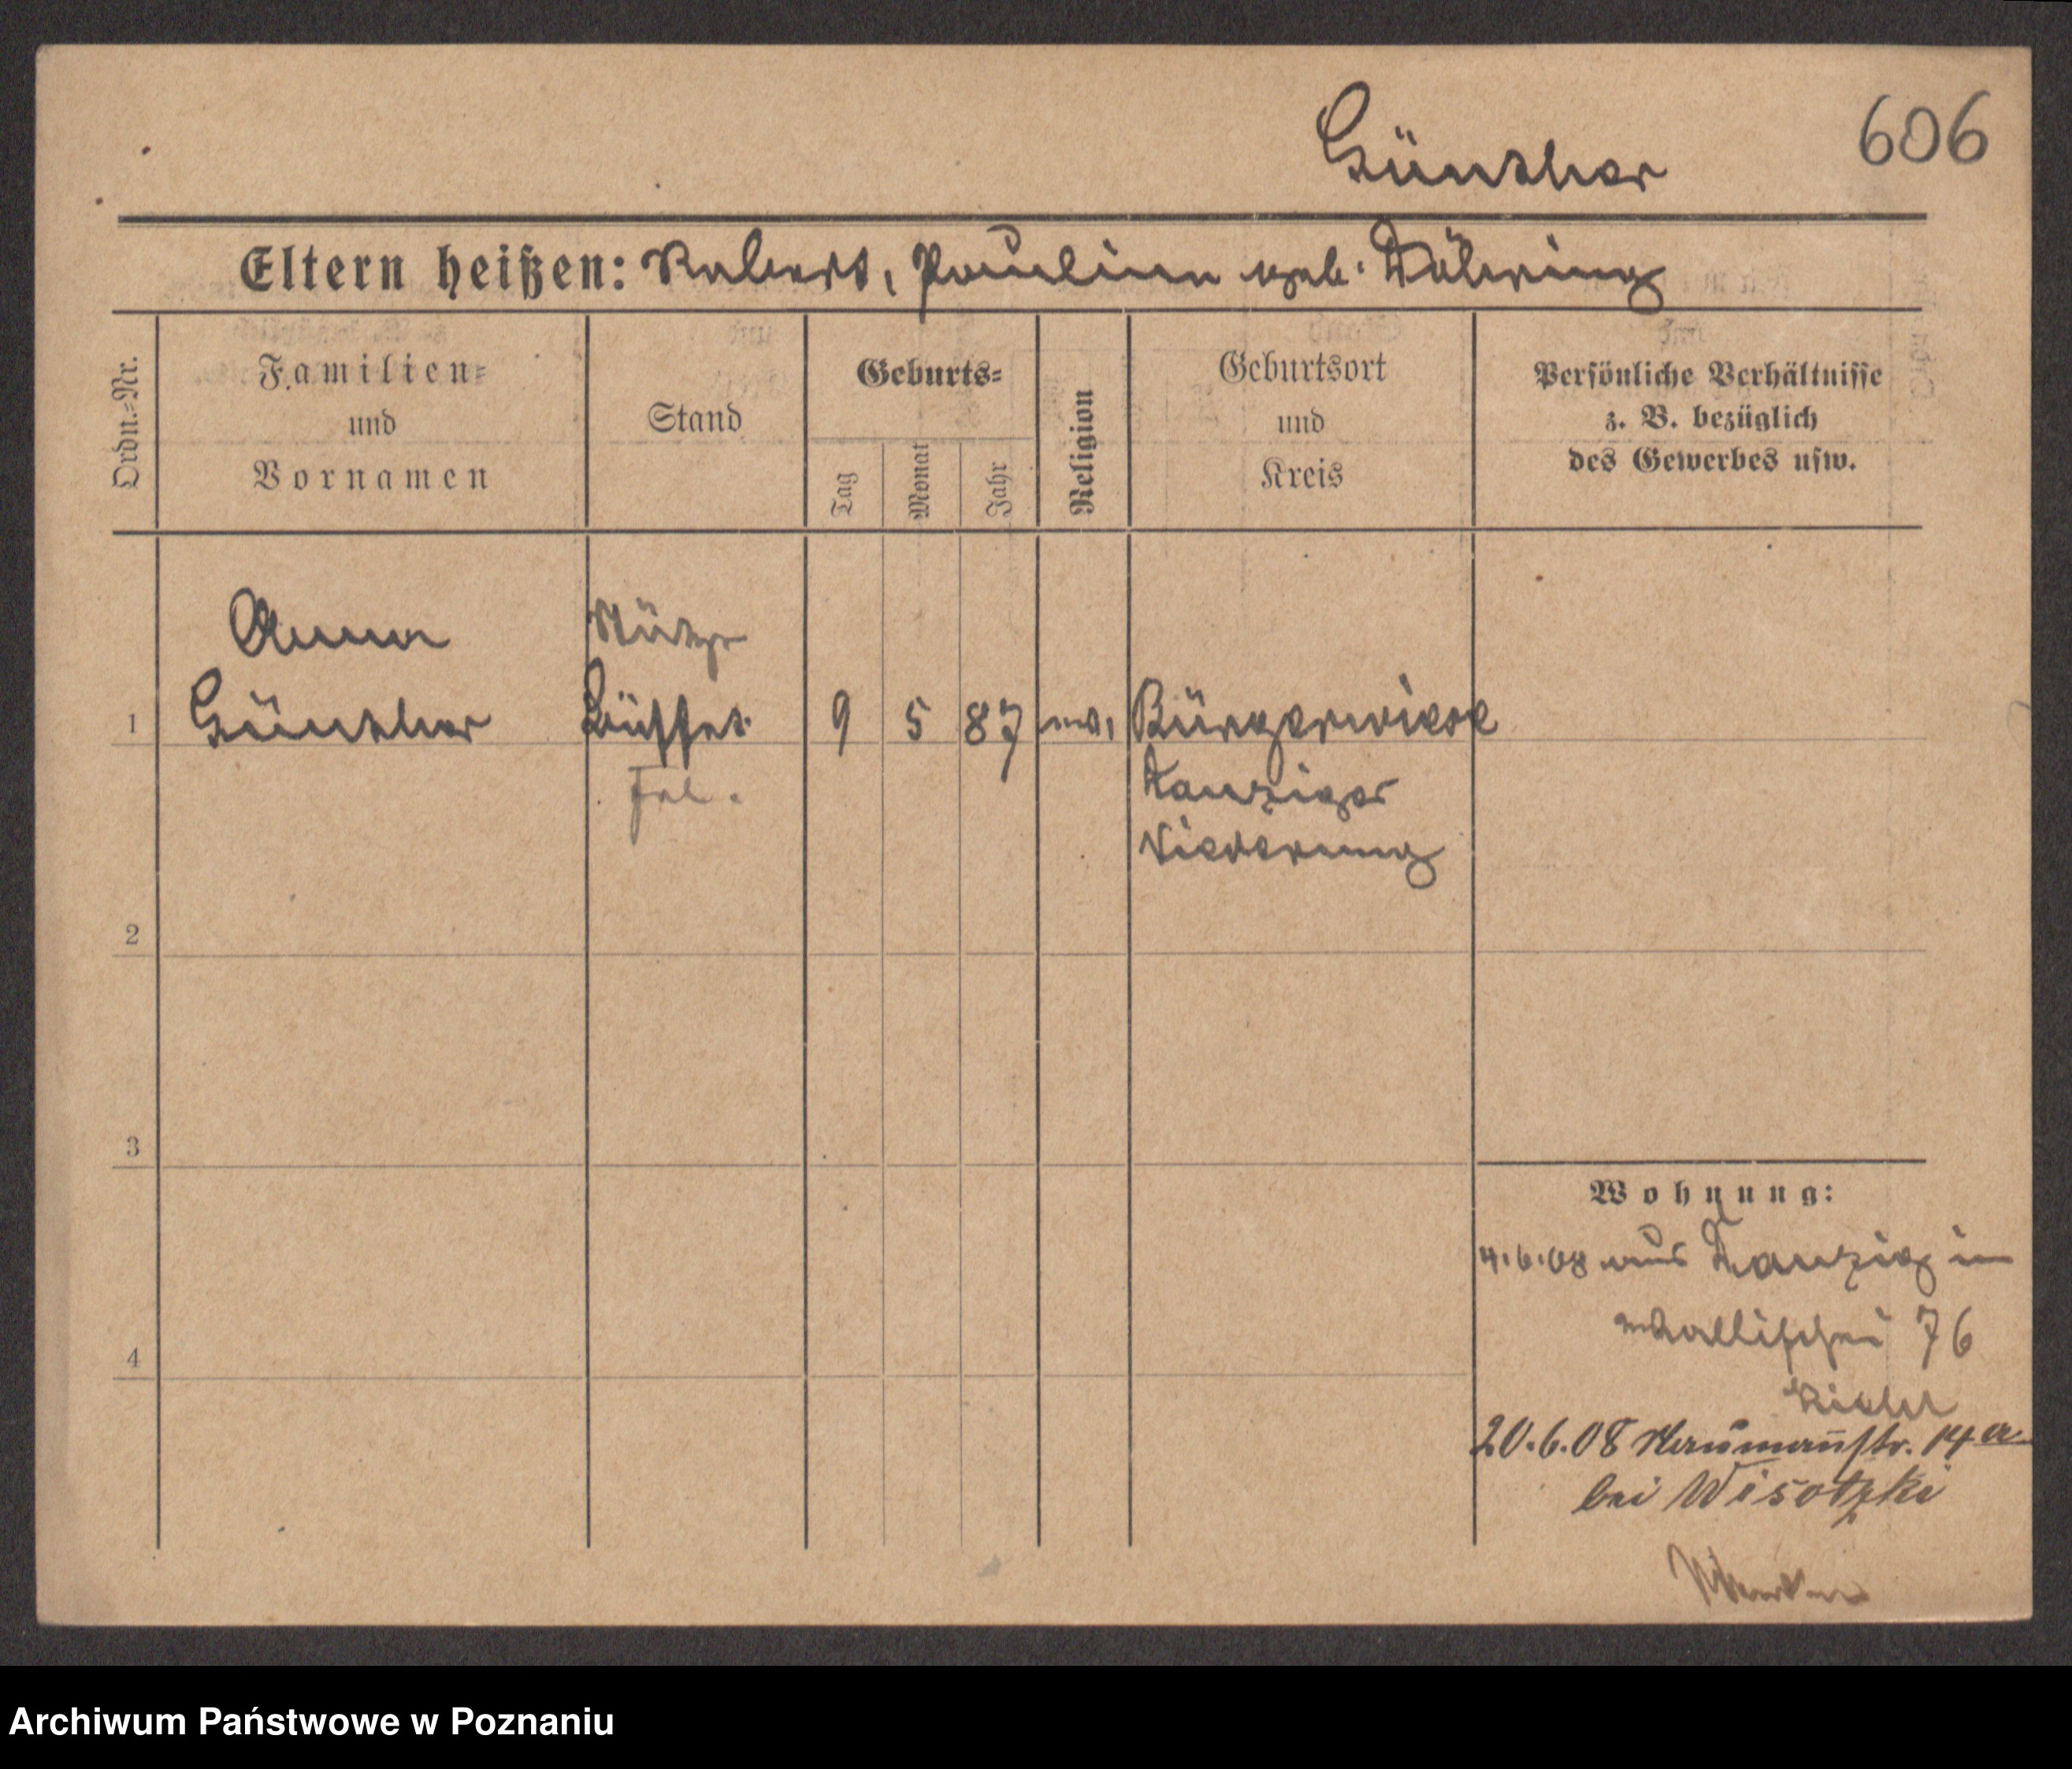 Günther 606
Eltern heißen: Robert, Pauline geb. Döhring
Ordn.-Nr.
Familien-
und
Vornamen
Stand
Geburts-
Tag
Monat
Jahr
Religion
Geburtsort
und
Kreis
Persönliche Verhältnisse
z. B. bezüglich
des Gewerbes usw.
Anna Stütze
1 Günther Büffet 9 5 87 ev. Bürgerwiese
Frl. Danziger
Niederung
2
3
4
Wohnung:
4.6.08 aus Danzig in
Wallischei 76
20.6.08 Naumannstr. 14a
bei Wisotzki
Archiwum Państwowe w Poznaniu